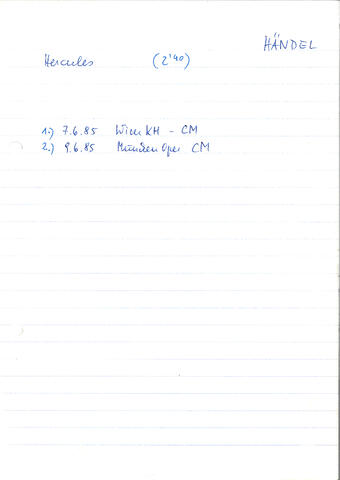 HÄNDEL
Hercules (2'40)
1.) 7.6.85 Wien KH - CM
2.) 9.6.85 München Oper CM